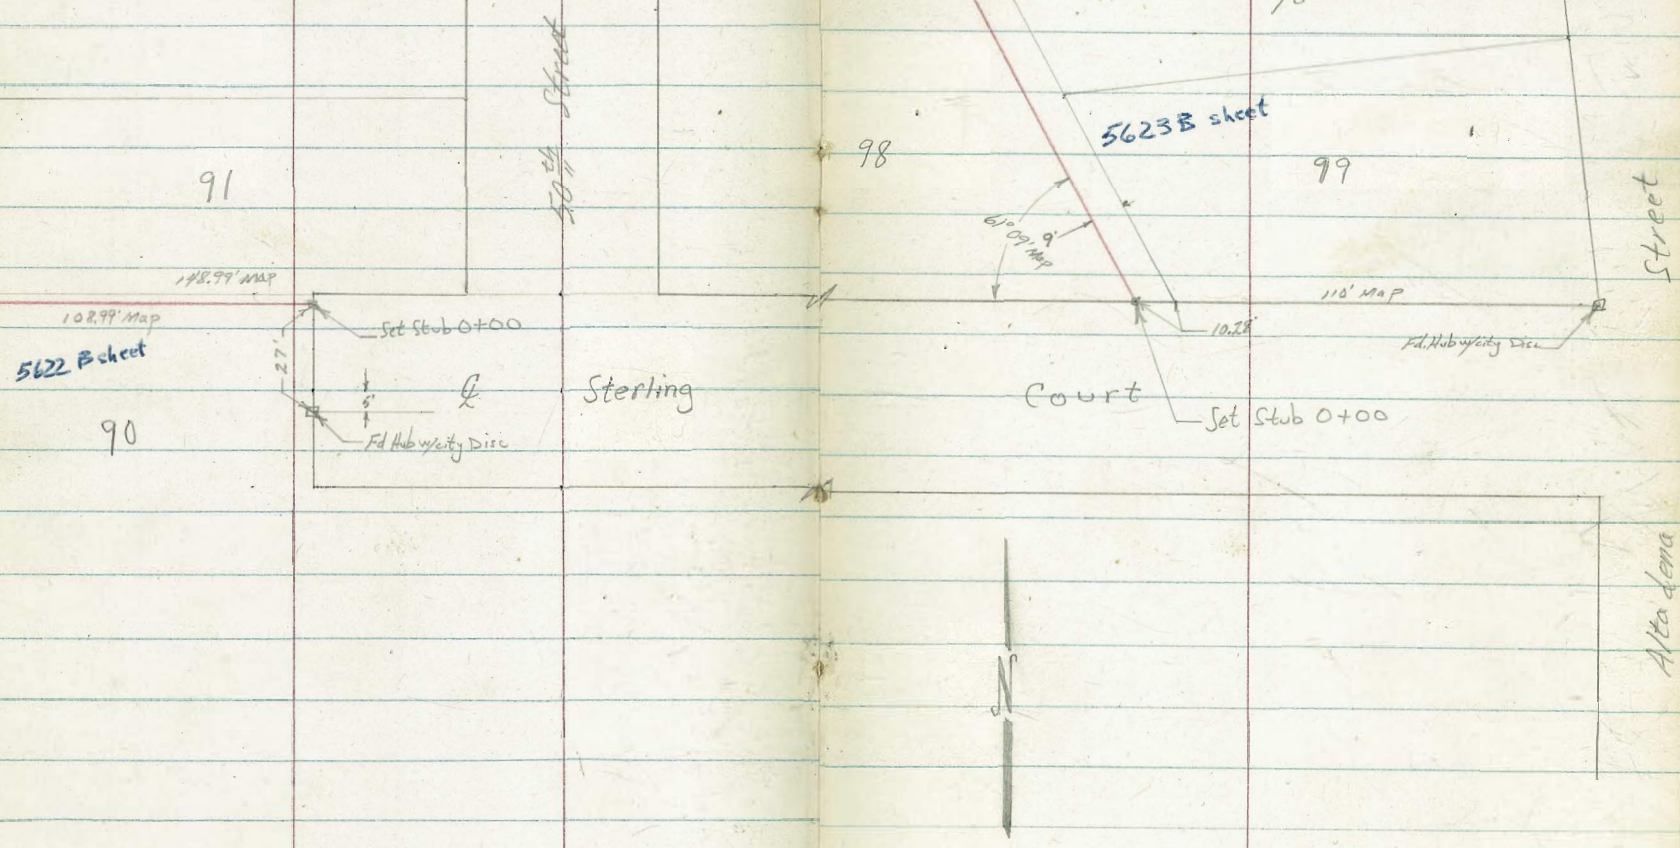 50th Street
91
148.99' Map
108.99' Map
5622 B sheet
27'
Set Stub 0+00
5'
℄
Sterling
90
Fd Hub w/city Disc
98
5623 B sheet
99
61° 09' Map
9'
110' Map
10.28'
Fd. Hub w/city Disc
Court
Set Stub 0+00
N
Altadena Street